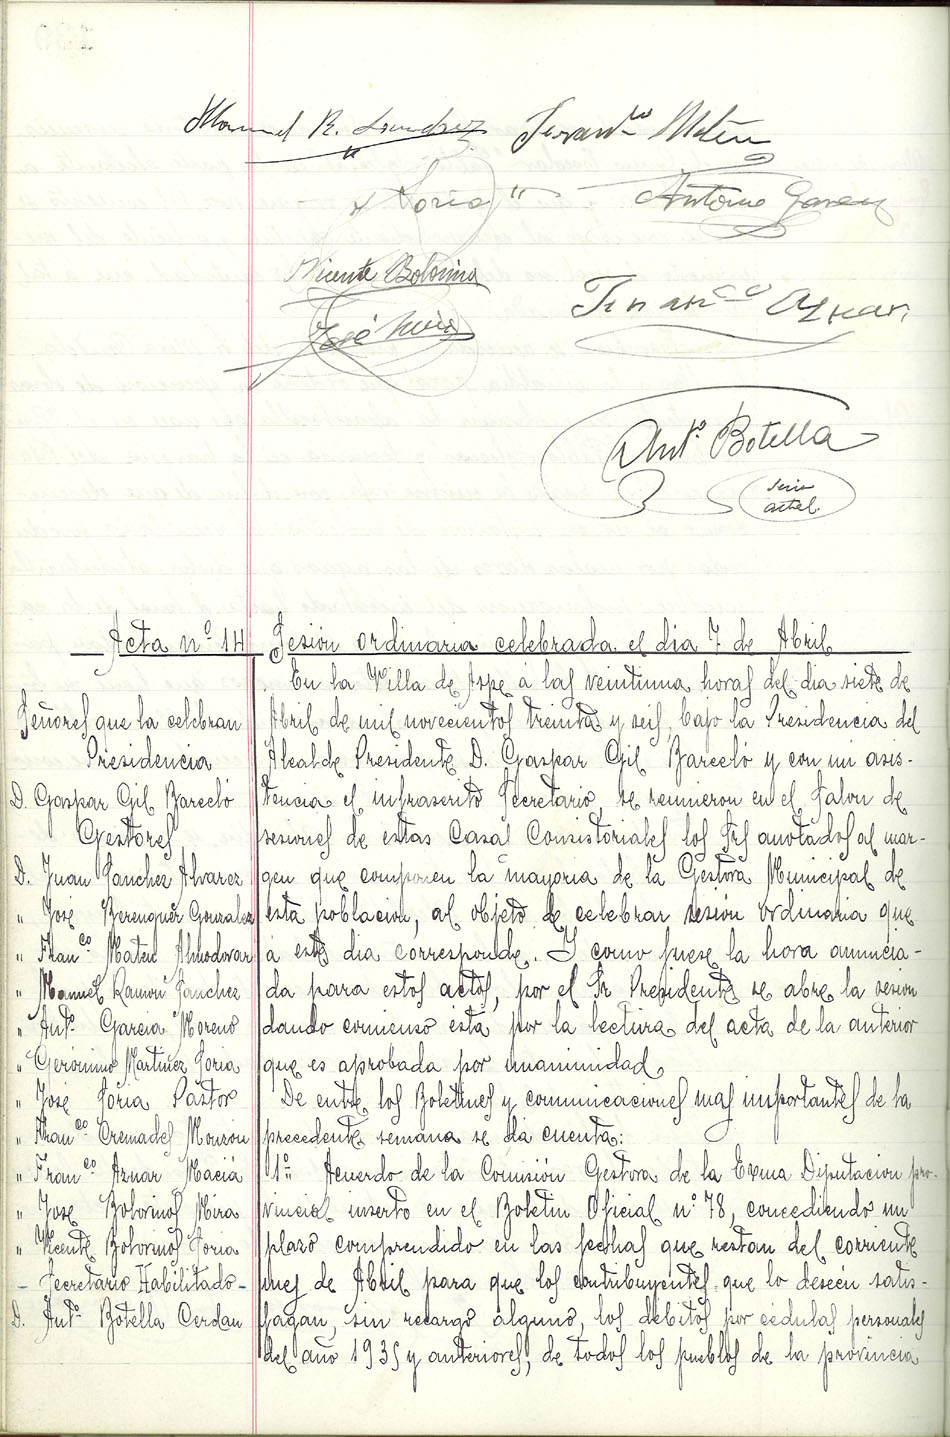 Manuel R. Sanchez Franco Mateu
J. Soria Antonio Garcia
Vicente Botorinos
Franco Aznar
José
Anto. Botella
Srio
actal.
Acta nº 14 Sesión ordinaria celebrada el dia 7 de Abril
Señores que la celebran
Presidencia
D. Gaspar Gil Barceló
Gestores
D. Juan Sanchez Alvarez
" José Berenguer Gonzalez
" Franco Mateu Almodovar
" Manuel Ramon Sanchez
" Anto. Garcia Moreno
" Gerónimo Martinez Soria
" José Soria Pastor
" Franco Cremades Monzon
" Franco Aznar Maciá
" José Botorinos Mira
" Vicente Botorinos Soria
- Secretario Habilitado -
D. Anto. Botella Cerdan
En la Villa de Aspe a las veintiuna horas del dia siete de
Abril de mil novecientos treinta y seis, bajo la Presidencia del
Alcalde Presidente D. Gaspar Gil Barceló y con mi asis-
tencia el infrascrito Secretario, se reunieron en el Salon de
sesiones de estas Casas Consistoriales los Srs anotados al mar-
gen que componen la mayoria de la Gestora Municipal de
esta poblacion, al objeto de celebrar sesión ordinaria que
a este dia corresponde. Y como fuese la hora anuncia-
da para estos actos, por el Sr Presidente se abre la sesion
dando comienso esta por la lectura del acta de la anterior
que es aprobada por unanimidad.
De entre los Boletines y comunicaciones mas importantes de la
precedente semana se da cuenta:
1º Acuerdo de la Comisión Gestora de la Exma Diputacion pro-
vincial inserto en el Boletin Oficial nº 78, concediendo un
plazo comprendido en las fechas que restan del corriente
mes de Abril para que los contribuyentes que lo deseen satis-
fagan, sin recargo alguno, los débitos por cédulas personales
del año 1935 y anteriores, de todos los pueblos de la provincia